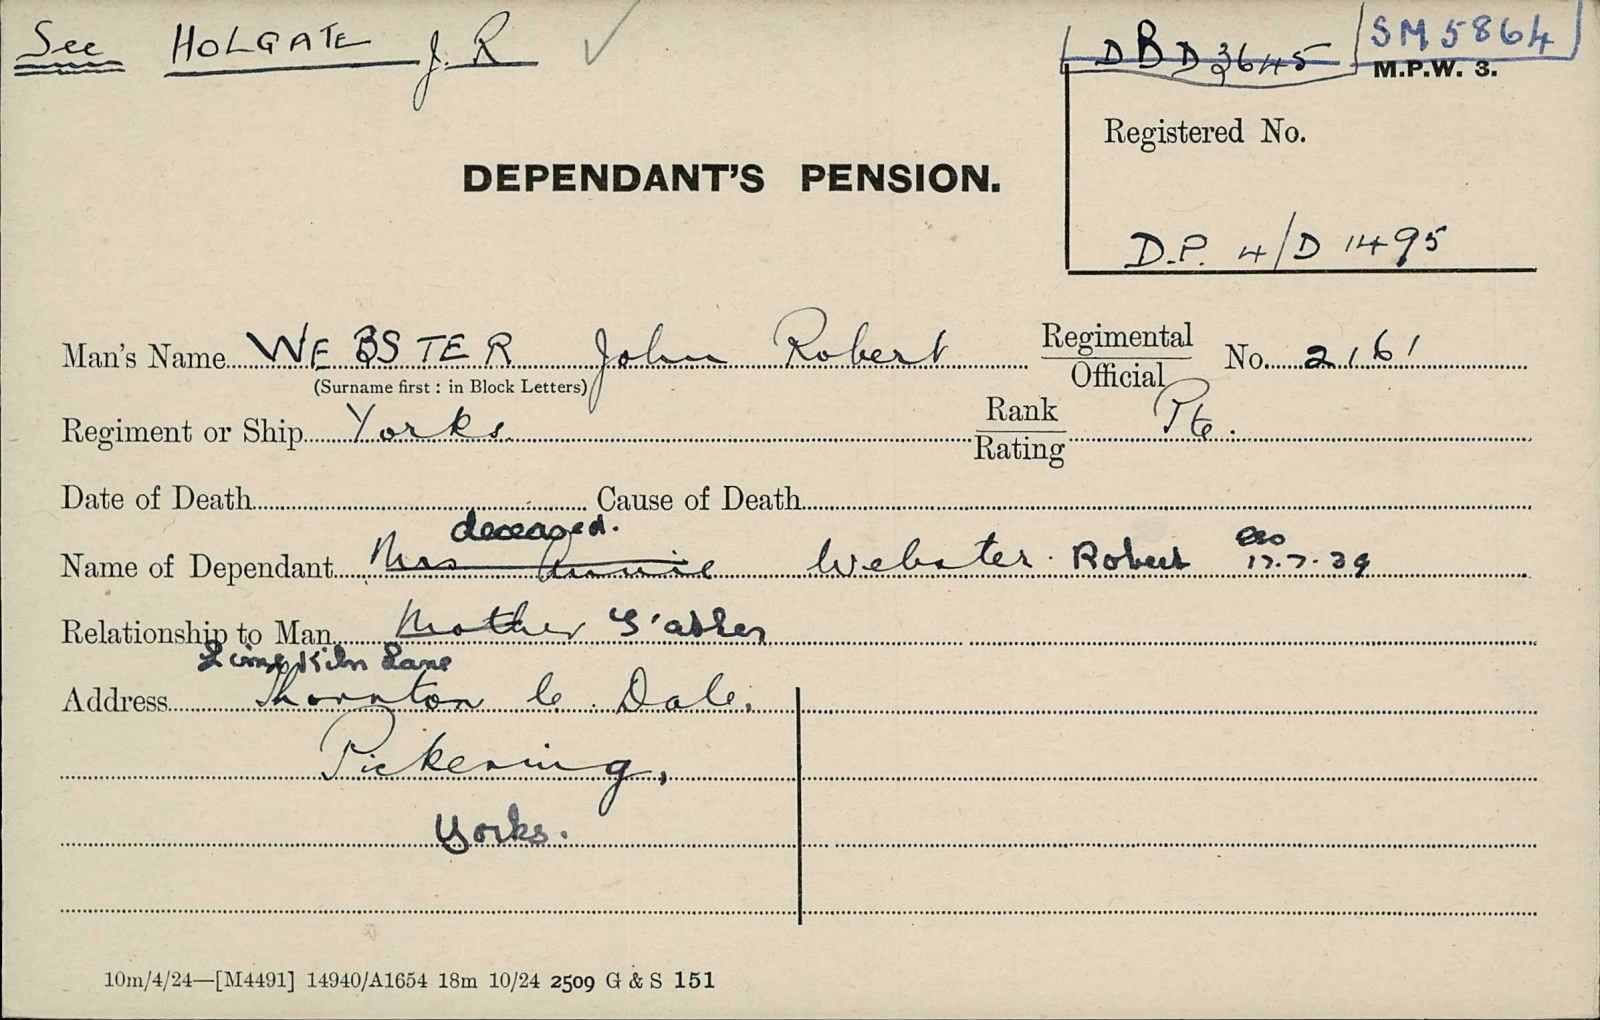 See HOLGATE J. R
DBD 3645 SM 5864
M.P.W. 3.
Registered No.
DEPENDANT'S PENSION.
D.P. 4/D 1495
Man's Name WEBSTER John Robert Regimental Official No. 2161
(Surname first : in Block Letters)
Regiment or Ship Yorks. Rank Rating Pte.
Date of Death Cause of Death
deceased.
Name of Dependant Mrs Annie Webster. Robert 17.7.39
Relationship to Man Mother F'ather
Lime Kiln Lane
Address Thornton le Dale,
Pickering,
Yorks.
10m/4/24—[M4491] 14940/A1654 18m 10/24 2509 G & S 151